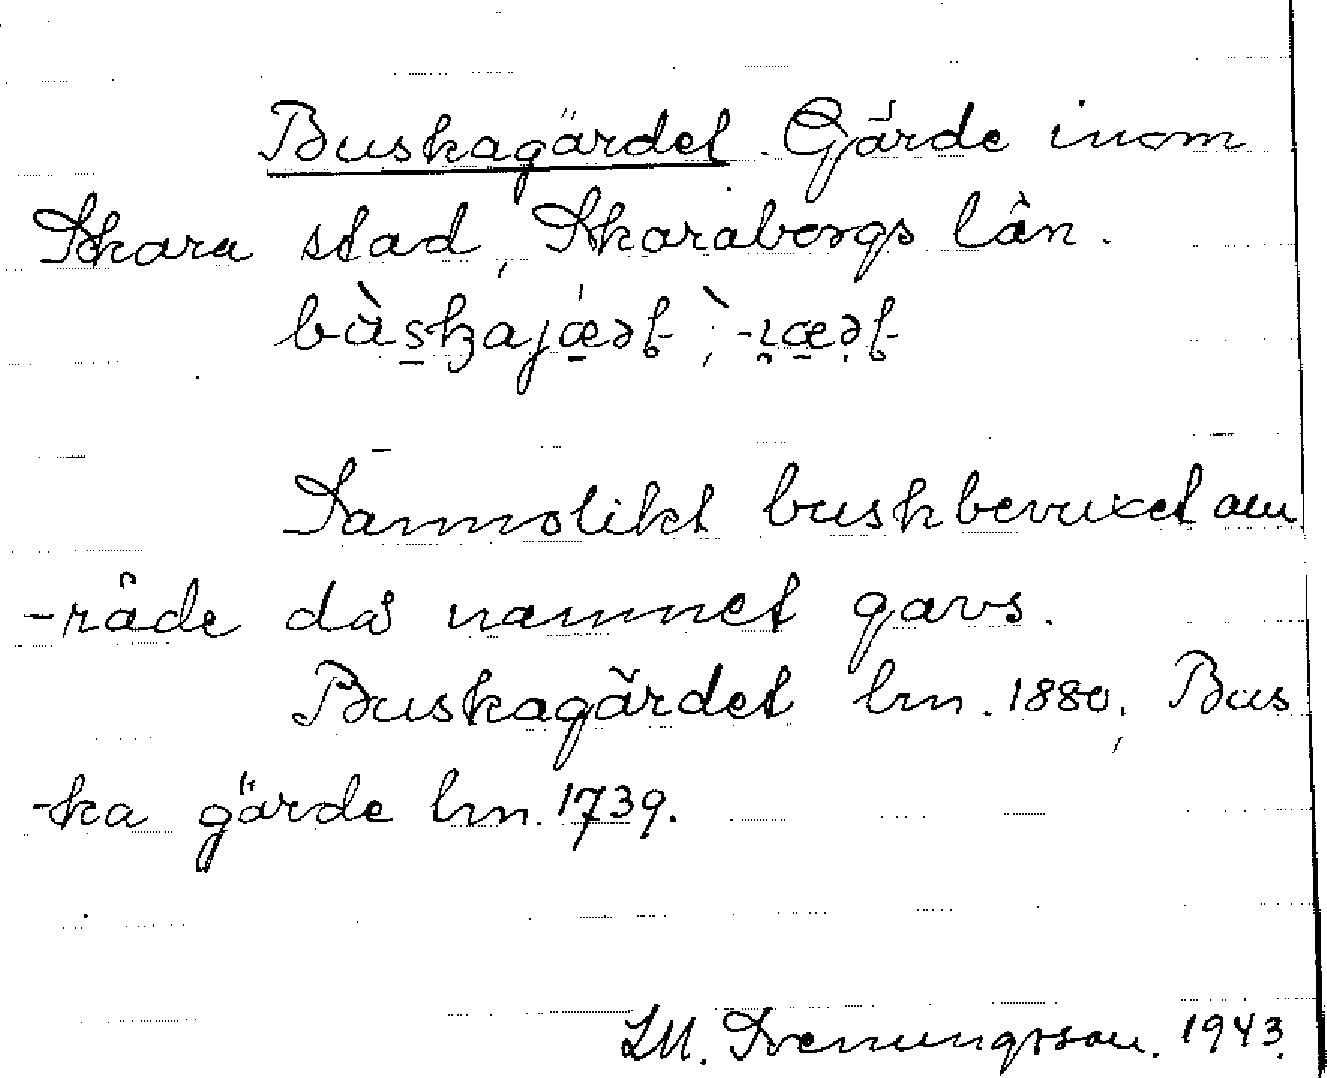 Buskagärdet. Gärde inom
Skara stad, Skaraborgs län.
Sannolikt buskbevuxet om
-råde då namnet gavs.
Buskagärdet lm. 1880, Bus
-ka gärde lm. 1739.
1943.